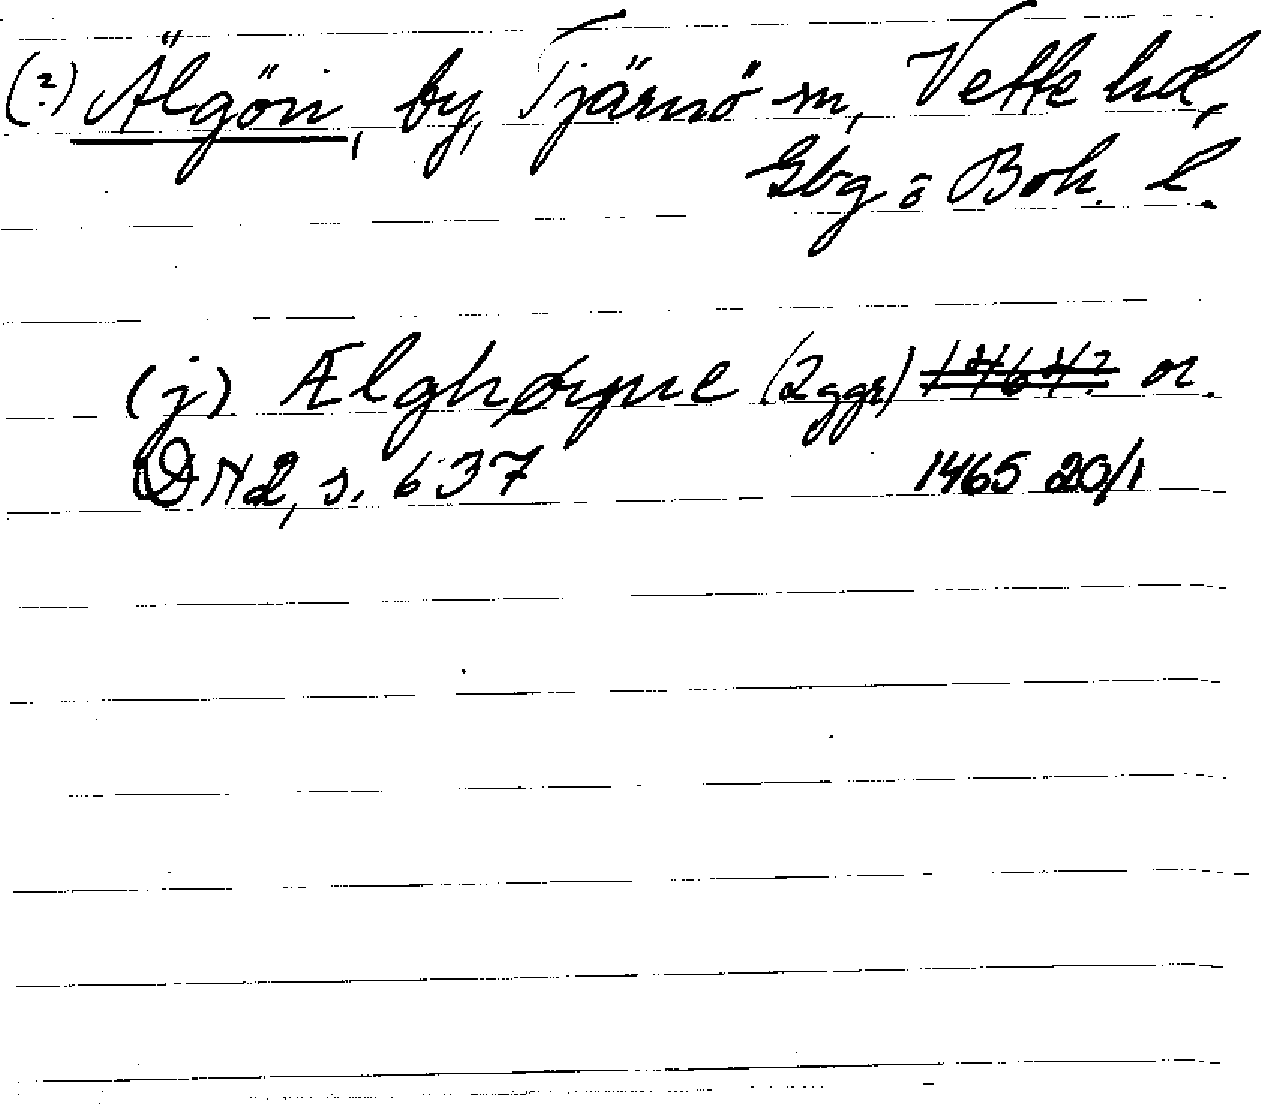 (?) Älgön, by, Tjärnö sn, Vette hd,
Gbg o Boh. l.
(j) Ælghøyne (2 ggr) 1464? or.
DN 2, s. 637 1465 20/1